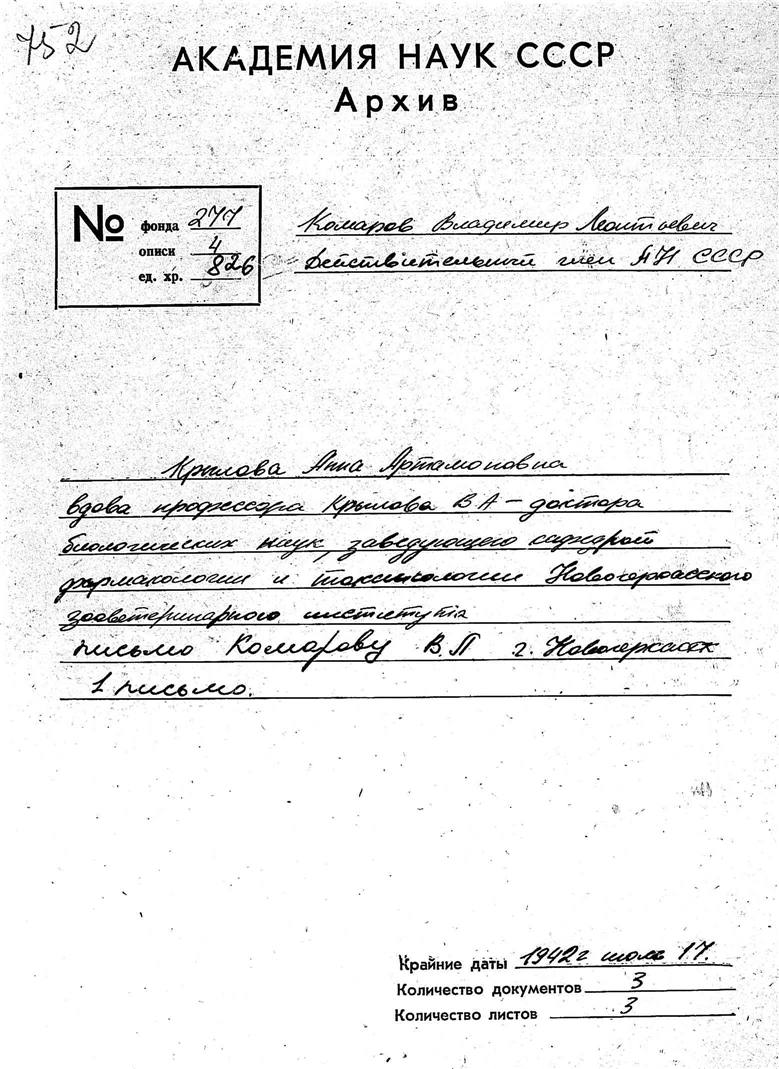 752
АКАДЕМИЯ НАУК СССР
Архив
№ фонда 277
описи 4
ед. хр. 826
Комаров Владимир Леонтьевич
Действительный член АН СССР
Крылова Анна Артамоновна
вдова профессора Крылова В А – доктора
биологических наук, заведующего кафедрой
фармакологии и токсикологии Новочеркасского
зооветеринарного института
письмо Комарову В.Л. г. Новочеркасск
1 письмо.
Крайние даты 1942 г июль 17.
Количество документов 3
Количество листов 3